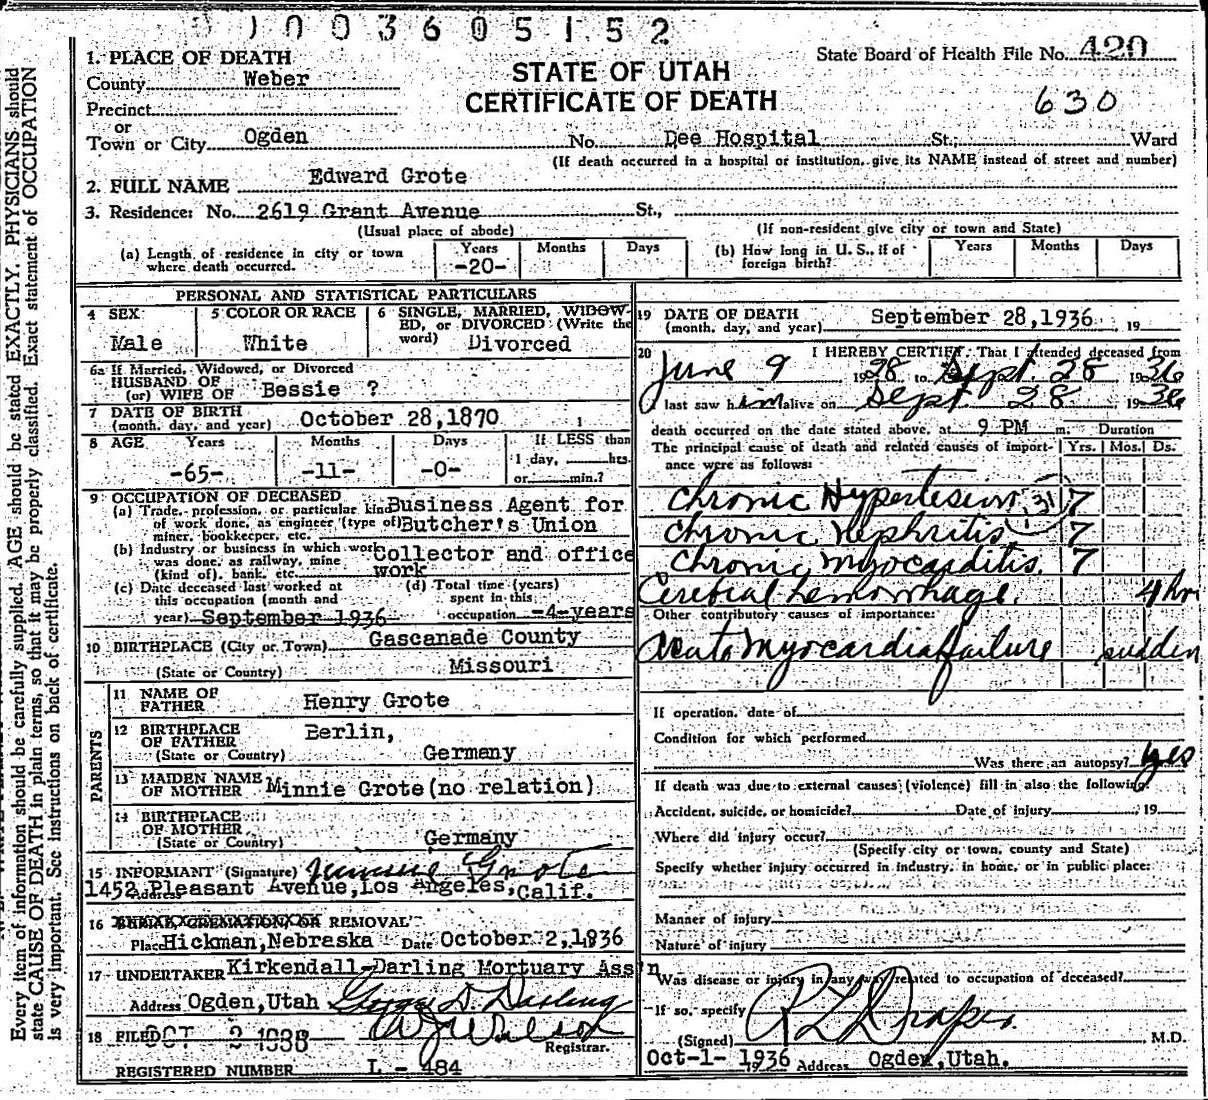 1003605152
1. PLACE OF DEATH
State Board of Health File No. 420
County Weber
STATE OF UTAH
CERTIFICATE OF DEATH
630
Precinct
or
Town or City Ogden No. Dee Hospital St.; Ward
(If death occurred in a hospital or institution, give its NAME instead of street and number)
2. FULL NAME Edward Grote
3. Residence: No. 2619 Grant Avenue St.,
(Usual place of abode) (If non-resident give city or town and State)
(a) Length of residence in city or town where death occurred. Years -20- Months Days
(b) How long in U. S., if of foreign birth? Years Months Days
PERSONAL AND STATISTICAL PARTICULARS
4 SEX Male
5 COLOR OR RACE White
6 SINGLE, MARRIED, WIDOWED, or DIVORCED (Write the word) Divorced
6a If Married, Widowed, or Divorced
HUSBAND OF
(or) WIFE OF Bessie ?
7 DATE OF BIRTH
(month, day, and year) October 28,1870
8 AGE Years -65- Months -11- Days -0- If LESS than 1 day, hrs. or min.?
9 OCCUPATION OF DECEASED
(a) Trade, profession, or particular kind of work done, as engineer (type of) miner, bookkeeper, etc. Business Agent for Butcher's Union
(b) Industry or business in which work was done, as railway, mine (kind of), bank, etc. Collector and office work
(c) Date deceased last worked at this occupation (month and year) September 1936
(d) Total time (years) spent in this occupation -4-years
10 BIRTHPLACE (City or Town) Gascanade County
(State or Country) Missouri
PARENTS
11 NAME OF FATHER Henry Grote
12 BIRTHPLACE OF FATHER Berlin,
(State or Country) Germany
13 MAIDEN NAME OF MOTHER Minnie Grote(no relation)
14 BIRTHPLACE OF MOTHER
(State or Country) Germany
15 INFORMANT (Signature) Grote
Address 1452 Pleasant Avenue,Los Angeles,Calif.
16 BURIAL, CREMATION, OR REMOVAL
Place Hickman,Nebraska Date October 2,1936
17 UNDERTAKER Kirkendall-Darling Mortuary Ass'n
Address Ogden,Utah George D. Darling
18 FILED OCT 2 1936 Registrar.
REGISTERED NUMBER L - 484
19 DATE OF DEATH
(month, day, and year) September 28,1936 19
20 I HEREBY CERTIFY, That I attended deceased from
June 9 1928 to Sept 28 1936
I last saw him alive on Sept 28 1936
death occurred on the date stated above, at 9 PM m. Duration
The principal cause of death and related causes of importance were as follows: Yrs. Mos. Ds.
Chronic Hypertesium 131 7
Chronic Nephritis 7
Chronic Myocarditis. 7
Cerebral hemorrhage. 4 hrs
Other contributory causes of importance:
Acute Myocardial failure sudden
If operation, date of
Condition for which performed
Was there an autopsy? yes
If death was due to external causes (violence) fill in also the following:
Accident, suicide, or homicide? Date of injury 19
Where did injury occur?
(Specify city or town, county and State)
Specify whether injury occurred in industry, in home, or in public place:
Manner of injury
Nature of injury
Was disease or injury in any way related to occupation of deceased?
If so, specify
(Signed) Draper. M.D.
Oct-1- 1936 Address Ogden,Utah.
Every item of information should be carefully supplied. AGE should be stated EXACTLY. PHYSICIANS should
state CAUSE OF DEATH in plain terms, so that it may be properly classified. Exact statement of OCCUPATION
is very important. See instructions on back of certificate.